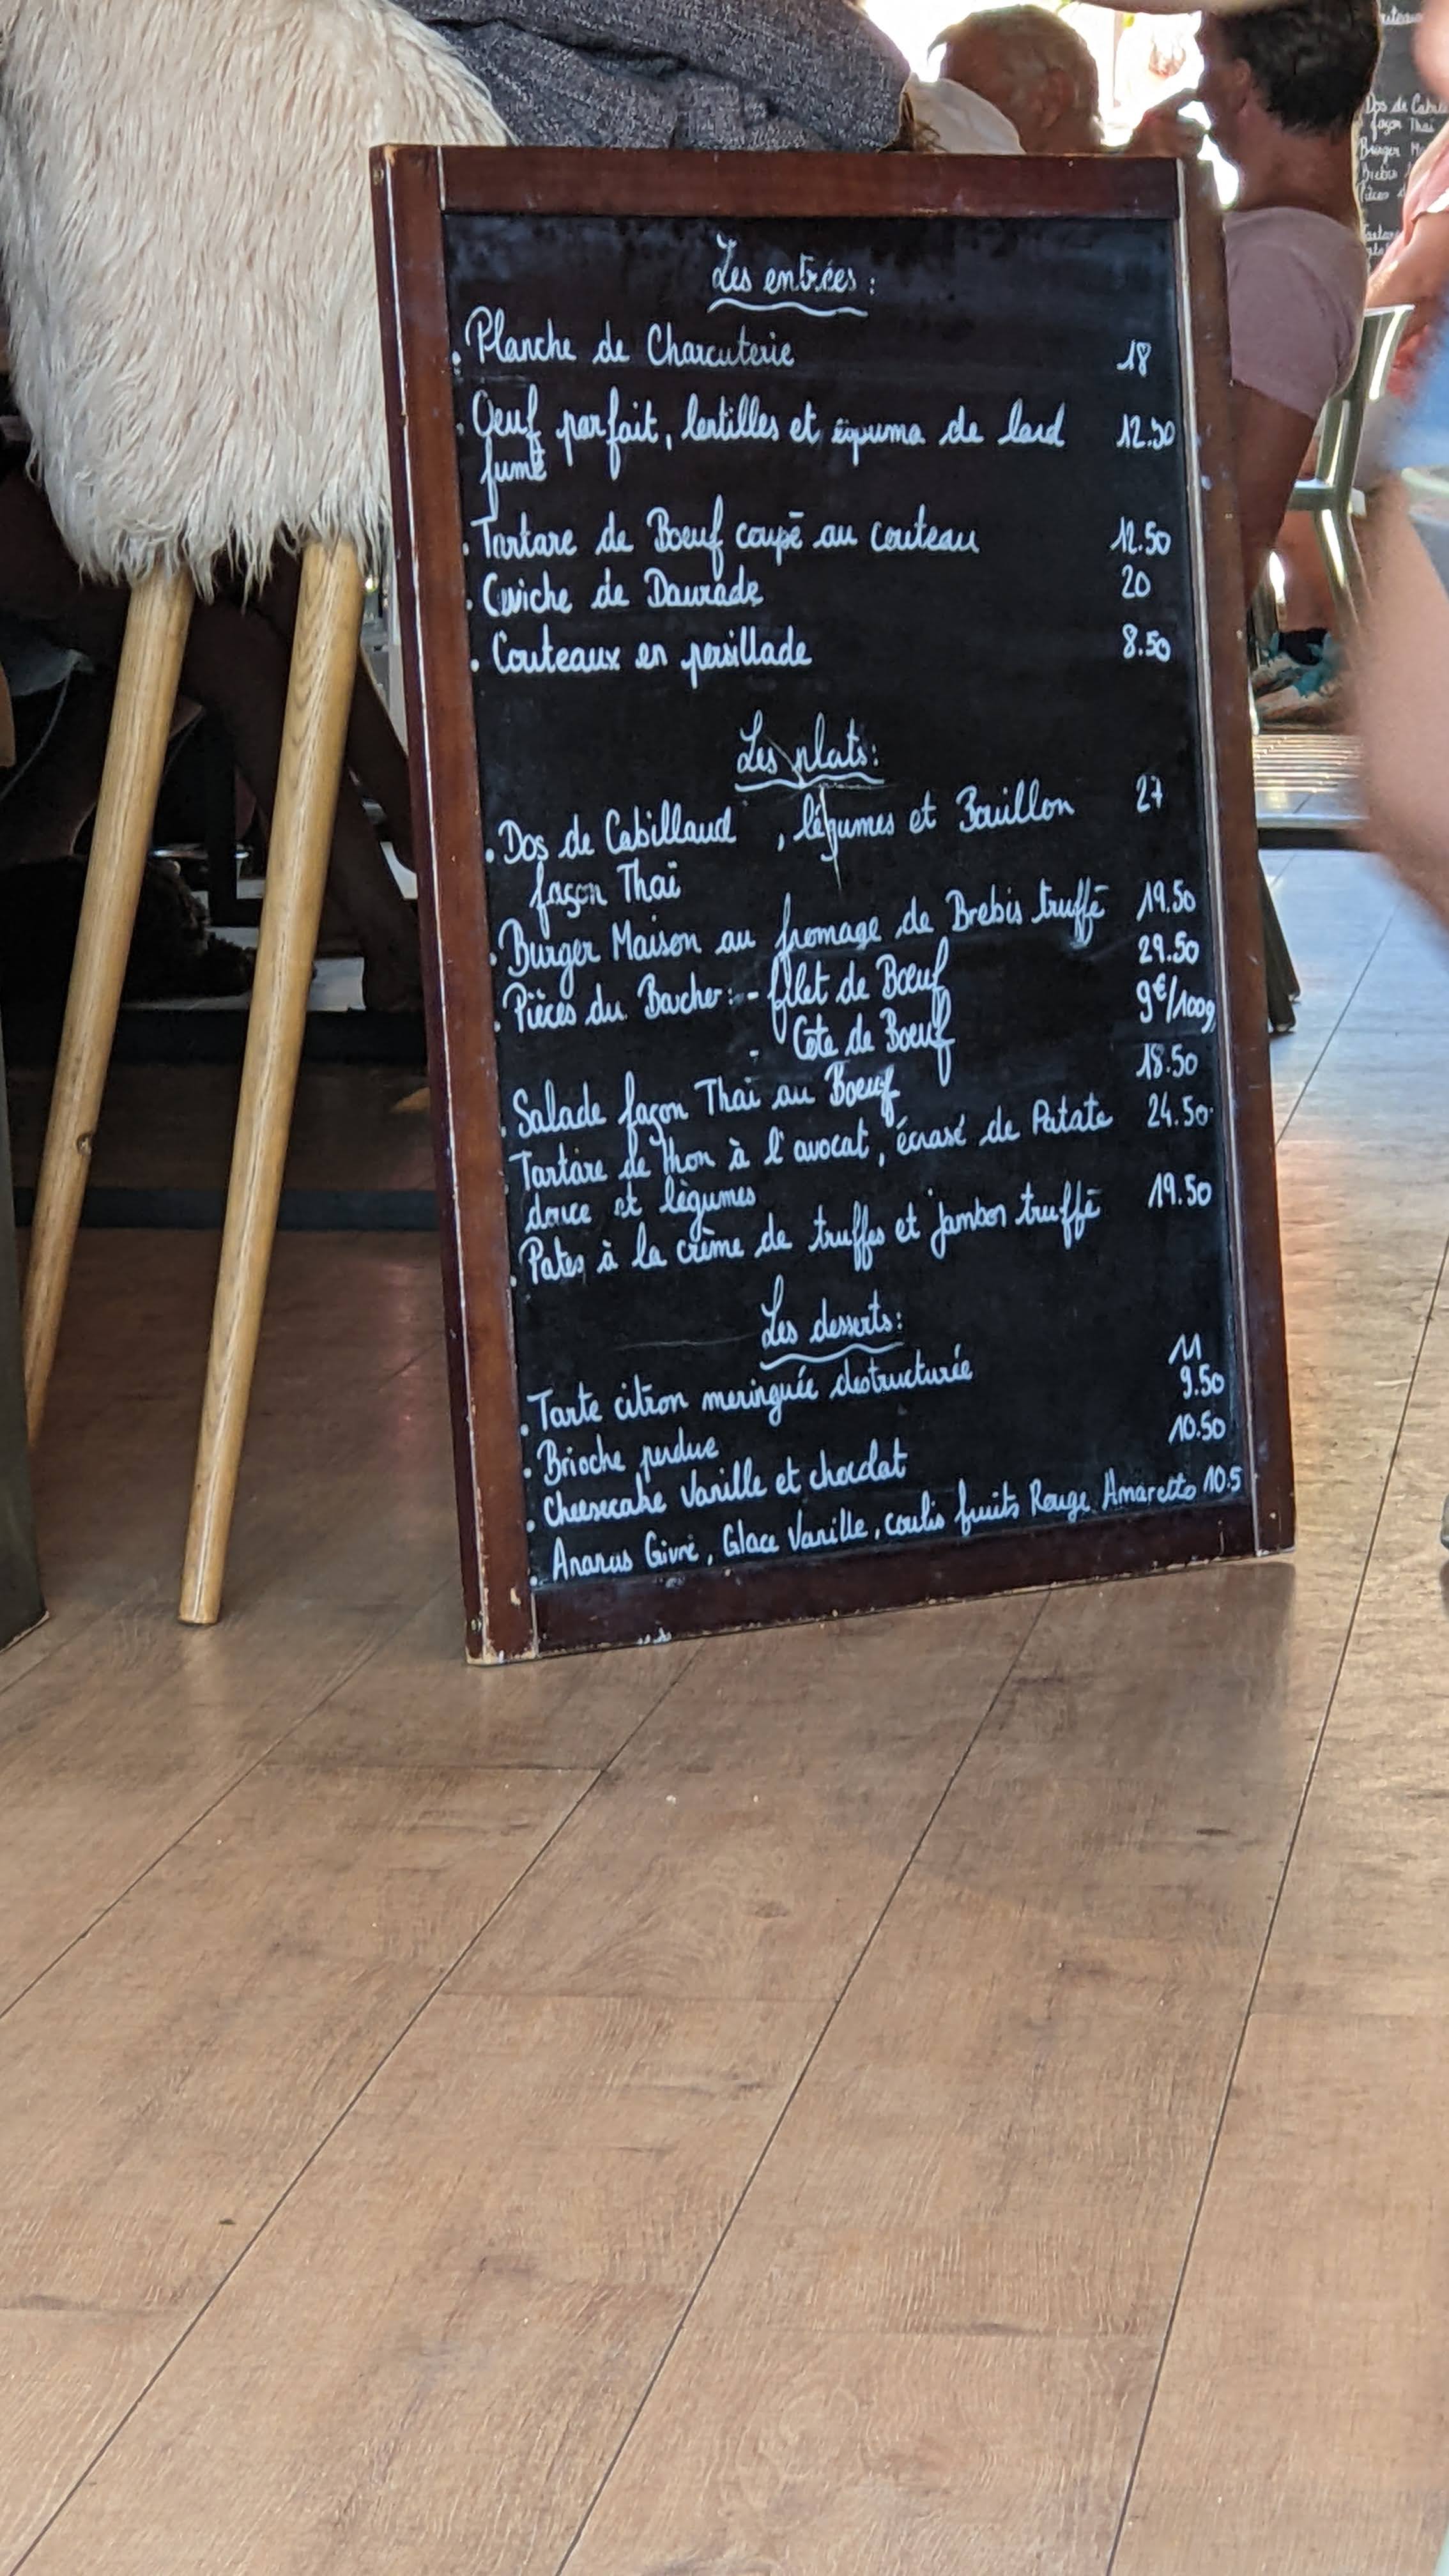 Les entrées :
. Planche de Charcuterie 18
. Oeuf parfait, lentilles et épuma de lard 12.50
fumé
. Tartare de Boeuf coupé au couteau 12.50
. Ceviche de Daurade 20
. Couteaux en persillade 8.50
Les plats:
. Dos de Cabillaud , légumes et Bouillon 27
façon Thaï
. Burger Maison au fromage de Brebis truffé 19.50
. Pièces du Boucher: - filet de Bœuf 29.50
- Cote de Boeuf 9€/100g
. Salade façon Thaï au Boeuf 18.50
. Tartare de thon à l'avocat, écrasé de Patate 24.50
douce et légumes
. Pates à la crème de truffes et jambon truffé 19.50
Les desserts:
. Tarte citron meringuée destructurée 11
. Brioche perdue 9.50
. Cheesecake Vanille et chocolat 10.50
. Ananas Givré, Glace Vanille, coulis fruits Rouge Amaretto 10.5
Dos de
façon Thaï